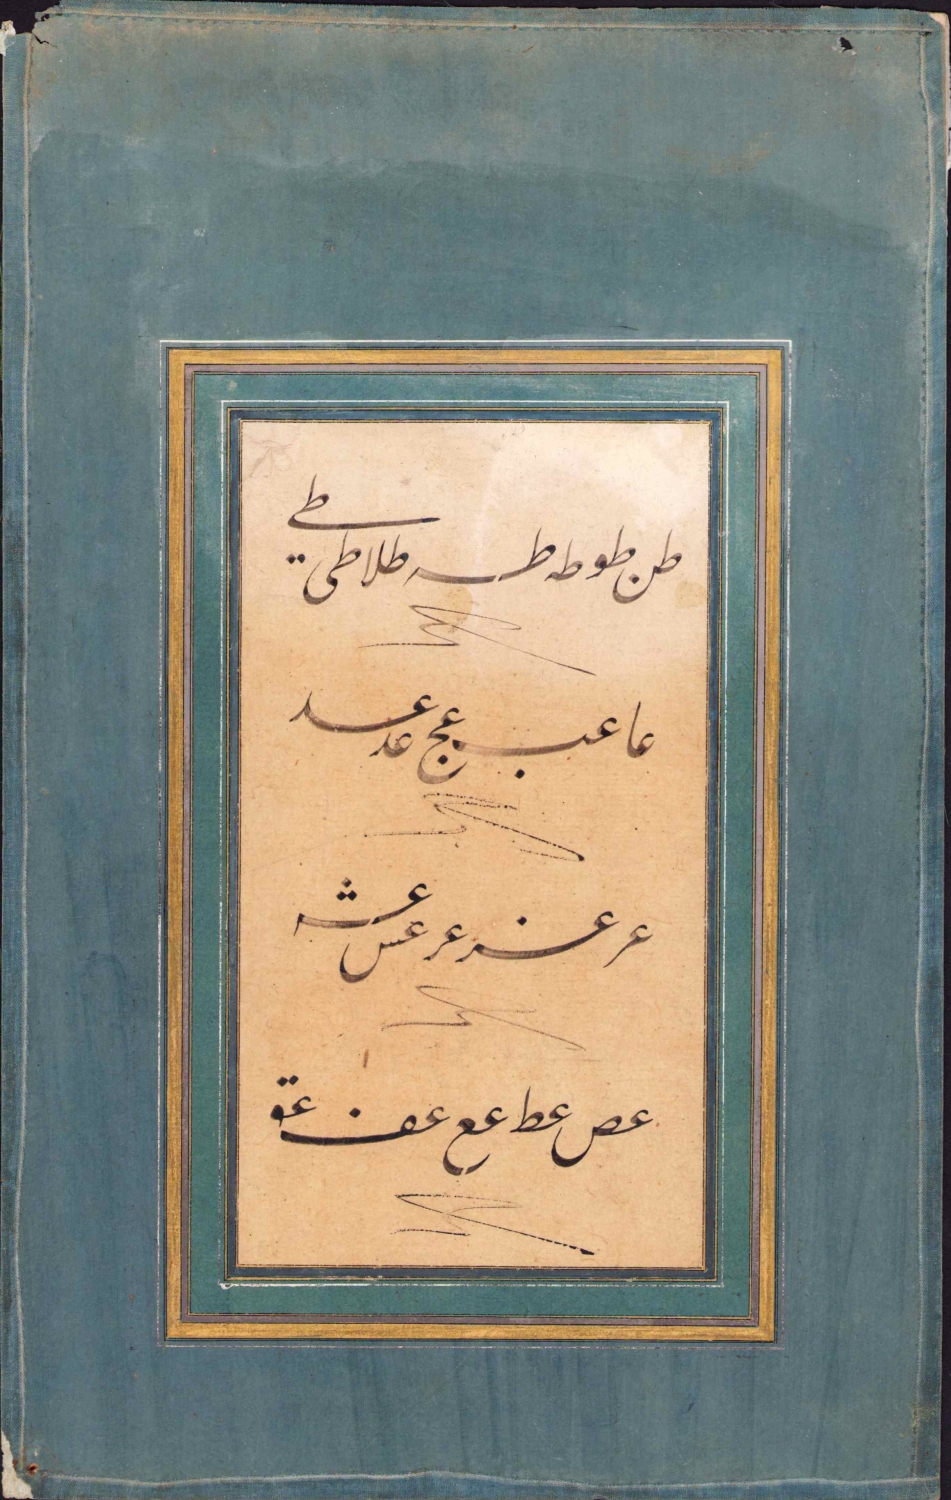 طن طو طه طه طلا طی طے
عا عب عج عد عد
عر عز عر عس عش
عص عط عع عف عق